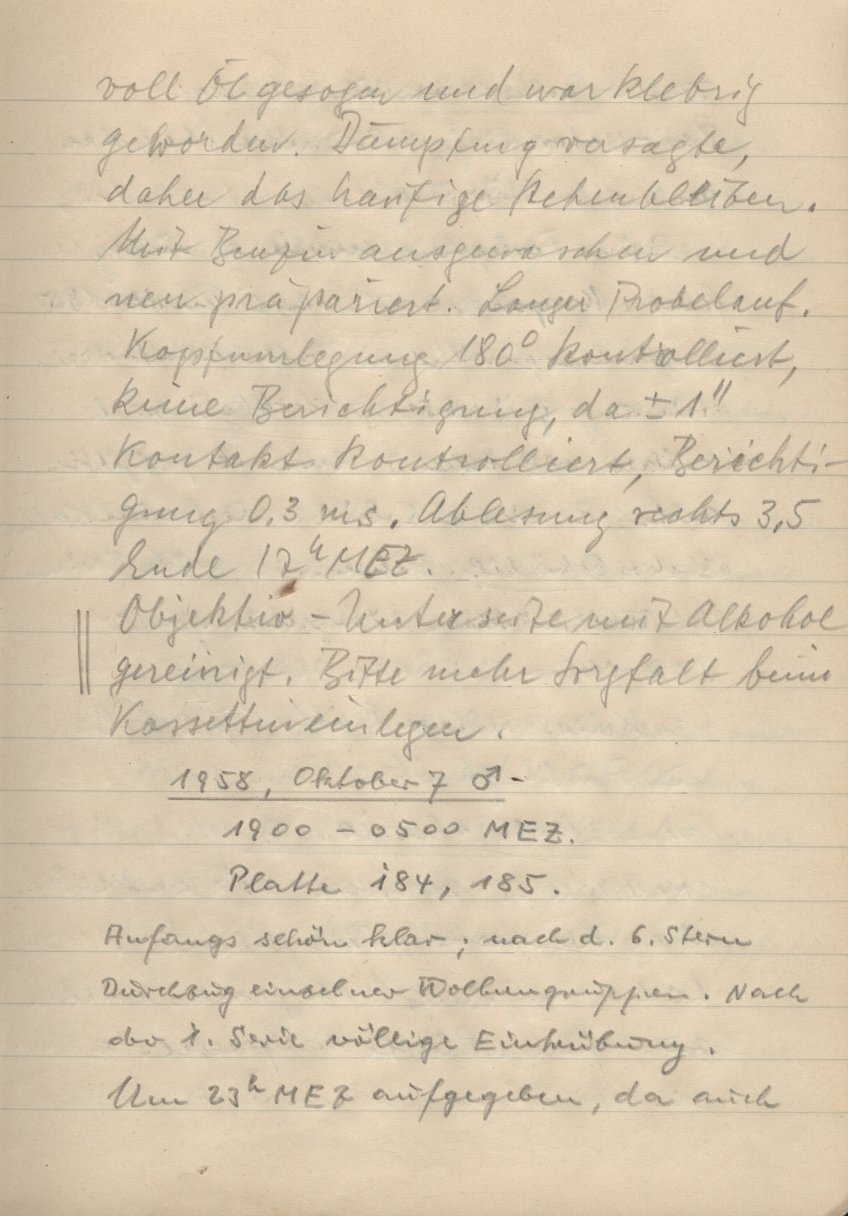 voll Öl gesogen und war klebrig
geworden. Dämpfung versagte,
daher das häufige Stehenbleiben.
Mit Benzin ausgewaschen und
neu präpariert. Langer Probelauf.
Kopfumlegung 180° kontrolliert,
keine Berichtigung, da ± 1"
Kontakt kontrolliert, Berichti-
gung 0,3 ms. Ablesung rechts 3,5
Ende 17ʰ MEZ.
Objektiv-Unterseite mit Alkohol
gereinigt. Bitte mehr Sorgfalt beim
Kassetteneinlegen.
1958, Oktober 7 ♂-
1900 - 0500 MEZ.
Platte 184, 185.
Anfangs schön klar; nach d. 6. Stern
Durchzug einzelner Wolkengruppen. Nach
der 1. Serie völlige Eintrübung.
Um 23ʰ MEZ aufgegeben, da auch